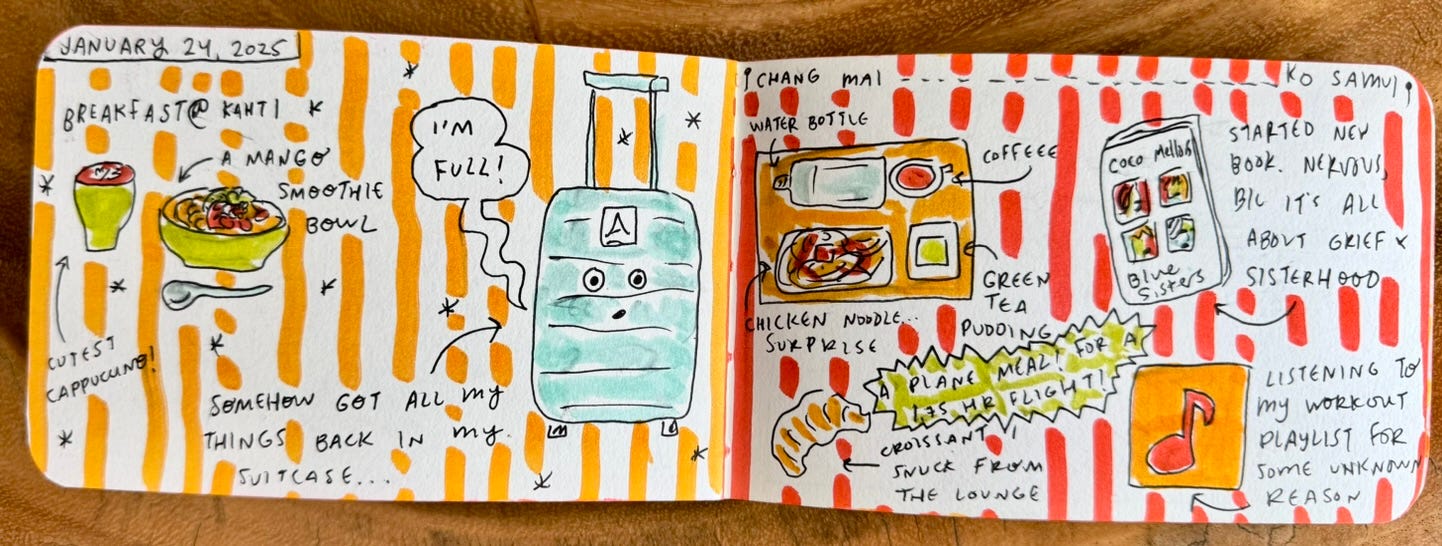 JANUARY 24, 2025
BREAKFAST@ KAHTI
A MANGO
SMOOTHIE
BOWL
CUTEST
CAPPUCCINO!
I'M
FULL!
SOMEHOW GOT ALL MY
THINGS BACK IN MY
SUITCASE...
CHANG MAI
KO SAMUI
WATER BOTTLE
COFFEEE
GREEN
TEA
PUDDING
CHICKEN NOODLE...
SURPRISE
A PLANE MEAL! FOR A
1.75 HR FLIGHT!
CROISSANT I
SNUCK FROM
THE LOUNGE
COCO Mellors
Blue
Sisters
STARTED NEW
BOOK. NERVOUS,
B/C IT'S ALL
ABOUT GRIEF +
SISTERHOOD
LISTENING TO
MY WORKOUT
PLAYLIST FOR
SOME UNKNOWN
REASON